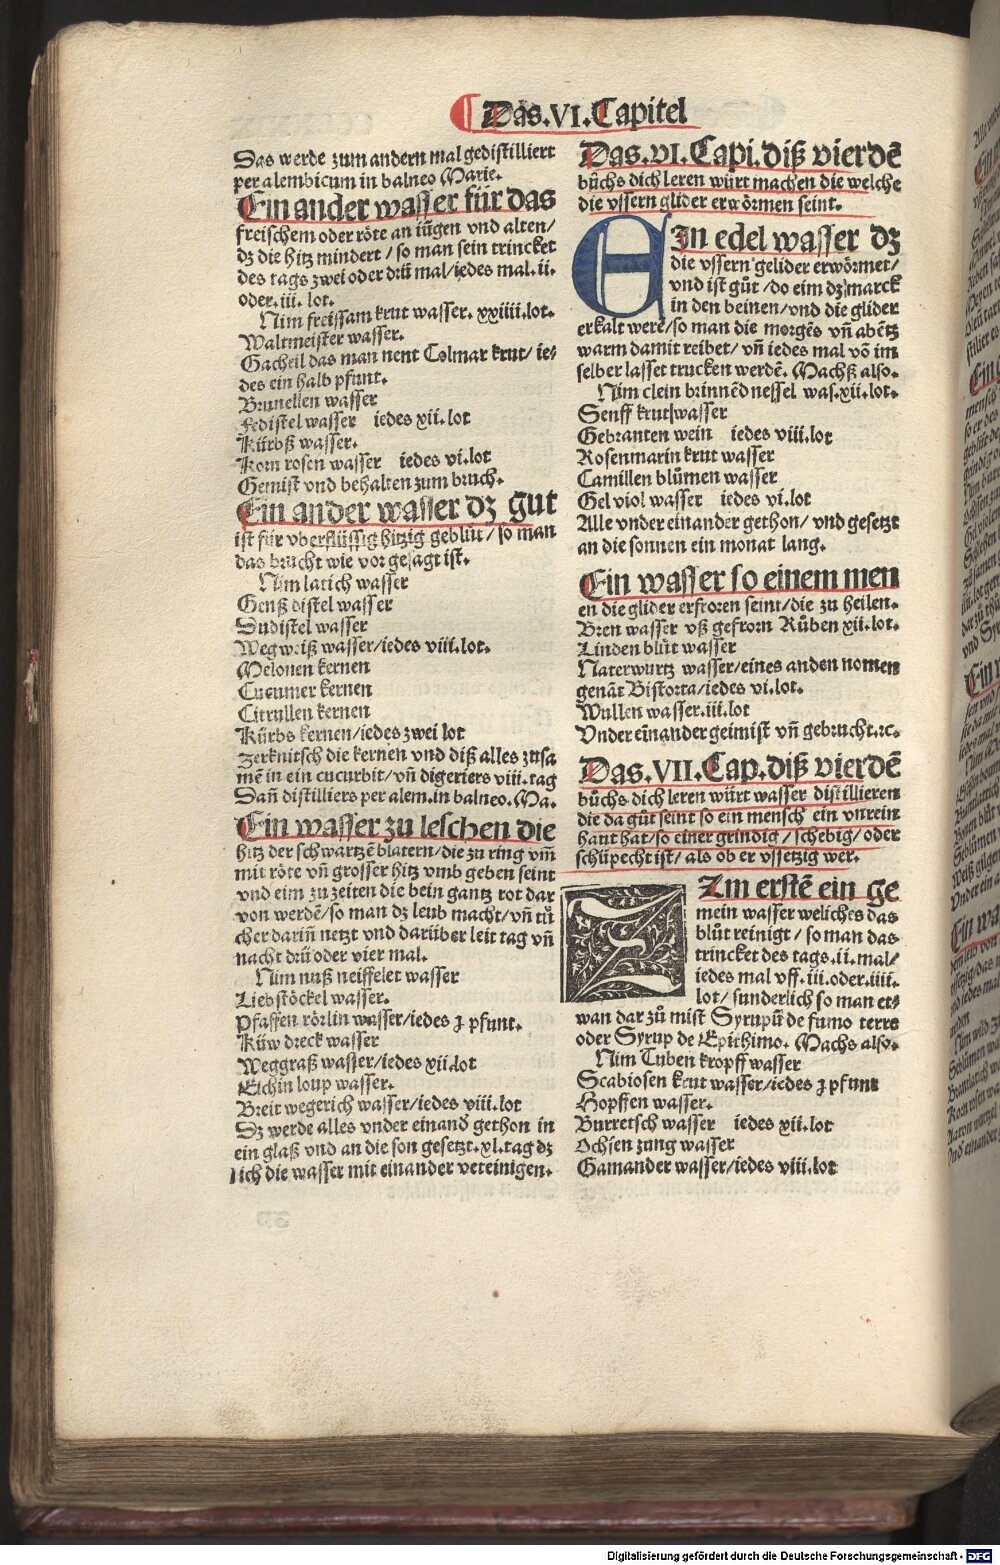 Das.VI.Capitel
Das werde zum andern mal gedistilliert
per alembicum in balneo Marie.
Ein ander wasser für das
freischem oder röte an iũgen vnd alten/
dz die hitz mindert/so man sein trincket
des tags zwei oder drü mal/iedes mal.ii.
oder.iii.lot.
Nim freissam krut wasser.xxiiii.lot.
Waltmeister wasser.
Gacheil das man nent Colmar krut/ie⸗
des ein halb pfunt.
Brunellen wasser
Fedistel wasser iedes xii.lot
Kürbß wasser.
Korn rosen wasser iedes vi.lot
Gemist vnd behalten zum bruch.
Ein ander wasser dz gut
ist für vberflüssig hitzig geblüt/so man
das brucht wie vor gesagt ist.
Nim latich wasser
Genß distel wasser
Sudistel wasser
Wegweiß wasser/iedes viii.lot.
Melonen kernen
Cucumer kernen
Citrullen kernen
Kürbs kernen/iedes zwei lot
Zerknitsch die kernen vnd diß alles zusa
mẽ in ein cucurbit/vñ digeriers viii.tag
Dañ distilliers per alem.in balneo.Ma.
Ein wasser zu leschen die
hitz der schwartzẽ blatern/die zu ring vm̃
mit röte vñ grosser hitz vmb geben seint
vnd eim zu zeiten die bein gantz rot dar
von werdẽ/so man dz leub macht/vñ tů
cher darin̄ netzt vnd darüber leit tag vñ
nacht drü oder vier mal.
Nim nuß neiffelet wasser
Liebstöckel wasser.
Pfaffen rörlin wasser/iedes ʒ pfunt.
Küw dreck wasser
Weggraß wasser/iedes xii.lot
Eichin loup wasser.
Breit wegerich wasser/iedes viii.lot
Dz werde alles vnder einand gethon in
ein glaß vnd an die son gesetzt.xl.tag dz
sich die wasser mit einander vereinigen.
Das.vi.Capi.diß vierdẽ
bůchs dich leren würt machen die welche
die vssern glider erwörmen seint.
EIn edel wasser dz
die vssern gelider erwörmet/
vnd ist gůt/do eim dz marck
in den beinen/vnd die glider
erkalt were/so man die morgẽs vñ abẽtz
warm damit reibet/vñ iedes mal võ im
selber lasset trucken werdẽ.Machß also.
Nim clein brinnẽd nessel was.xii.lot.
Senff krutwasser
Gebranten wein iedes viii.lot
Rosenmarin krut wasser
Camillen blůmen wasser
Gel viol wasser iedes vi.lot
Alle vnder einander gethon/vnd gesetzt
an die sonnen ein monat lang.
Ein wasser so einem men
en die glider erfroren seint/die zu heilen.
Bren wasser vß gefrorn Růben xii.lot.
Linden blůt wasser
Naterwurtz wasser/eines anden nomen
genãt Bistorta/iedes vi.lot.
Wullen wasser.iii.lot
Vnder einander geimist vñ gebrucht.⁊c.
Das.VII.Cap.diß vierdẽ
bůchs dich leren würt wasser distillieren
die da gůt seint so ein mensch ein vnrein
haut hat/so einer grindig/schebig/oder
schüpecht ist/als ob er vssetzig wer.
ZIm erstẽ ein ge
mein wasser weliches das
blůt reinigt/so man das
trincket des tags.ii.mal/
iedes mal vff.iii.oder.iiii.
lot/sunderlich so man et⸗
wan dar zů mist Syrupũ de fumo terre
oder Syrup de Epithimo.Machs also.
Nim Tuben kropff wasser
Scabiosen krut wasser/iedes ʒ pfunt
Hopffen wasser.
Burretsch wasser iedes xii.lot
Ochsen zung wasser
Gamander wasser/iedes viii.lot
Digitalisierung gefördert durch die Deutsche Forschungsgemeinschaft - DFG